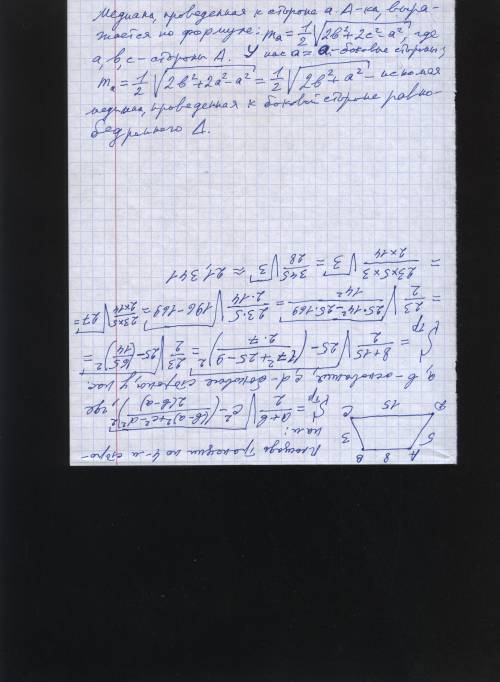 Медиана, проведенная к стороне a Δ-ка, выра-
жается по формуле: mₐ = 1/2 √(2b²+2c²-a²), где
a, b, c - стороны Δ. У нас a = a - боковые стороны,
mₐ = 1/2 √(2b²+2a²-a²) = 1/2 √(2b²+a²) - искомая
медиана, проведенная к боковой стороне равно-
бедренного Δ.
Площадь трапеции по 4-м сторо-
нам:
Sтр = (a+b)/2 √(c²-(((b-a)²+c²-d²)/(2(b-a)))²), где
a, b - основания, c, d - боковые стороны, у нас
Sтр = (8+15)/2 √(25-((7²+25-9)/(2·7))²) = 23/2 √(25-(65/14)²) =
= 23/2 √((25·14²-25·169)/14²) = (23·5)/(2·14) √(196-169) = (23×5)/(2×14) √27 =
= (23×5×3)/(2×14) √3 = 345/28 √3 ≈ 21,341
B
8
A
3
5
C
15
D